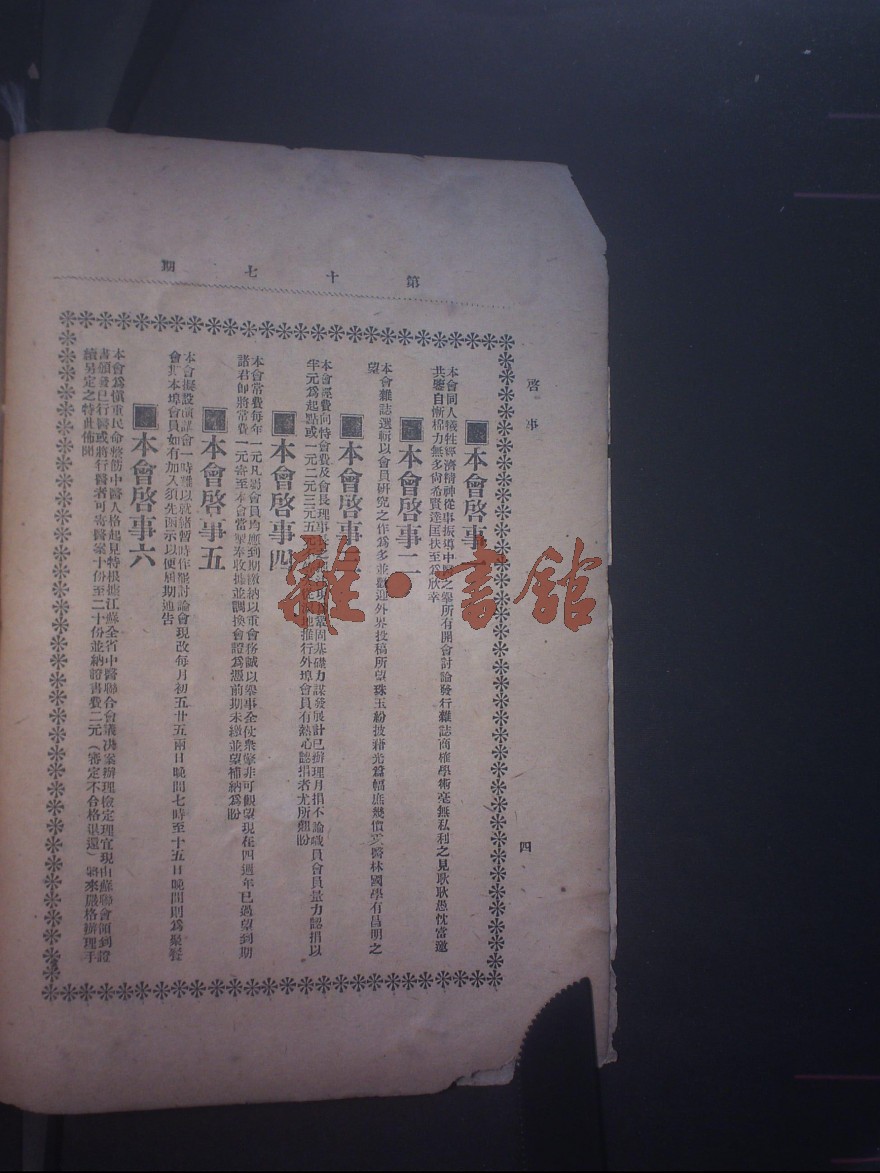 第十七期
啓事
四
本會啓事
本會同人犧牲經濟精神從事振導中醫之舉所有開會討論發行雜誌商確學術毫無私利之見耿耿愚忱當邀
共鑒自慚棉力無多尙希賢達匡扶至爲欣幸
本會啓事二
本會雜誌選輯以會員硏究之作爲多並歡迎外界投稿所望珠玉紛披藉光篇幅庶幾憤興醫林國學有昌明之
望
本會啓事
本會經費向特會費及會長理事長固基礎力謀發展計已辦理月捐不論職員會員量力認捐以
半元爲起點或一元二元三元五元推行外埠會員有熱心認捐者尤所翹盼
本會啓事四
本會常費每年一元凡屬會員均應到期繳納以重會務誠以舉事全仗衆擎非可觀望現在四週年已過望到期
諸君卽將常費一元寄至本會當掣奉收據並調換會證爲憑前期未繳並望補納爲盼
本會啓事五
本會擬設演講會一時難以就緒暫時作罷討論會現改每月初五廿五兩日晚間七時至十五日晚間則爲聚餐
會期本埠會員如有加入須先函示以便屆期通告
本會啓事六
本會爲愼重民命整飭中醫人格起見特根據江蘇全省中醫聯合會議決案辦理檢定理宜現由蘇聯會領到證
書頒發已行醫或將行醫者可寄醫案十份至二十份並納證書費二元（審定不合格退還）將來嚴格辦理手
續另定之特此佈聞
雜·書館